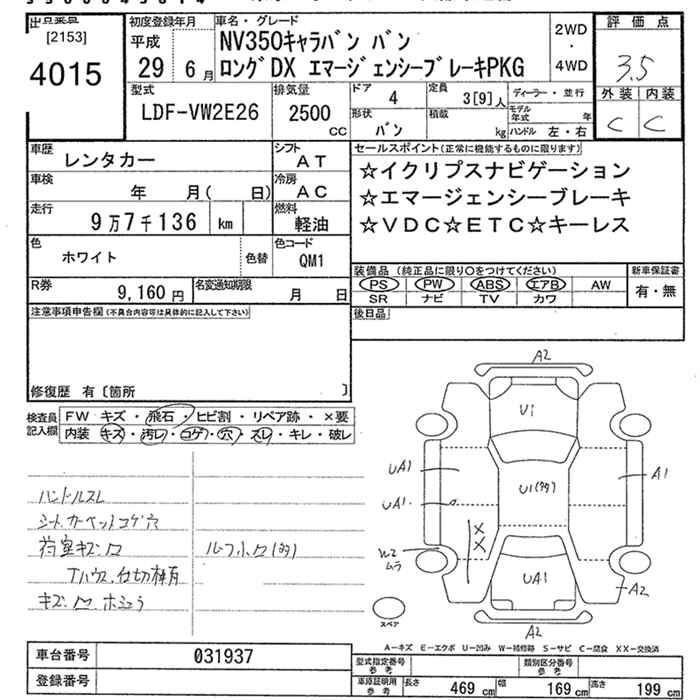 出品票
[2153]
4015
初度登録年月
平成
29 6月
車名・グレード
NV350キャラバン バン
ロングDX エマージェンシーブレーキPKG
2WD
・
4WD
評価点
3.5
外装 内装
C C
型式
LDF-VW2E26
排気量
2500
CC
ドア 4
定員 3[9]人
形状 バン
積載 kg
ディーラー・並行
モデル年式 年
ハンドル 左・右
車歴 レンタカー
シフト AT
車検 年 月( 日)
冷房 AC
走行 9万7千136 km
燃料 軽油
色 ホワイト 色替
色コード QM1
R券 9,160円
名変通知期限 月 日
セールスポイント(正常に機能するものに限ります)
☆イクリプスナビゲーション
☆エマージェンシーブレーキ
☆VDC☆ETC☆キーレス
装備品(純正品に限り○をつけてください)
PS PW ABS エアB AW
SR ナビ TV カワ
新車保証書
有・無
後日品
注意事項申告欄(不具合内容等は具体的に記入して下さい)
修復歴 有〔箇所 〕
検査員記入欄
FW キズ・飛石・ヒビ割・リペア跡・×要
内装 キズ・汚レ・コゲ・穴・スレ・キレ・破レ
ハンドルスレ
シートカーペットコゲ穴
荷室キズ
キズ
A2
U1
UA1
A1
UA1
U1(多)
XX
W2
ムラ
UA1
A2
A2
スペア
A-キズ E-エクボ U-凹み W-補修跡 S-サビ C-腐食 XX-交換済
車台番号 031937
登録番号
型式指定番号 参考
類別区分番号 参考
車庫証明用 参考
長さ 469 cm
幅 169 cm
高さ 199 cm